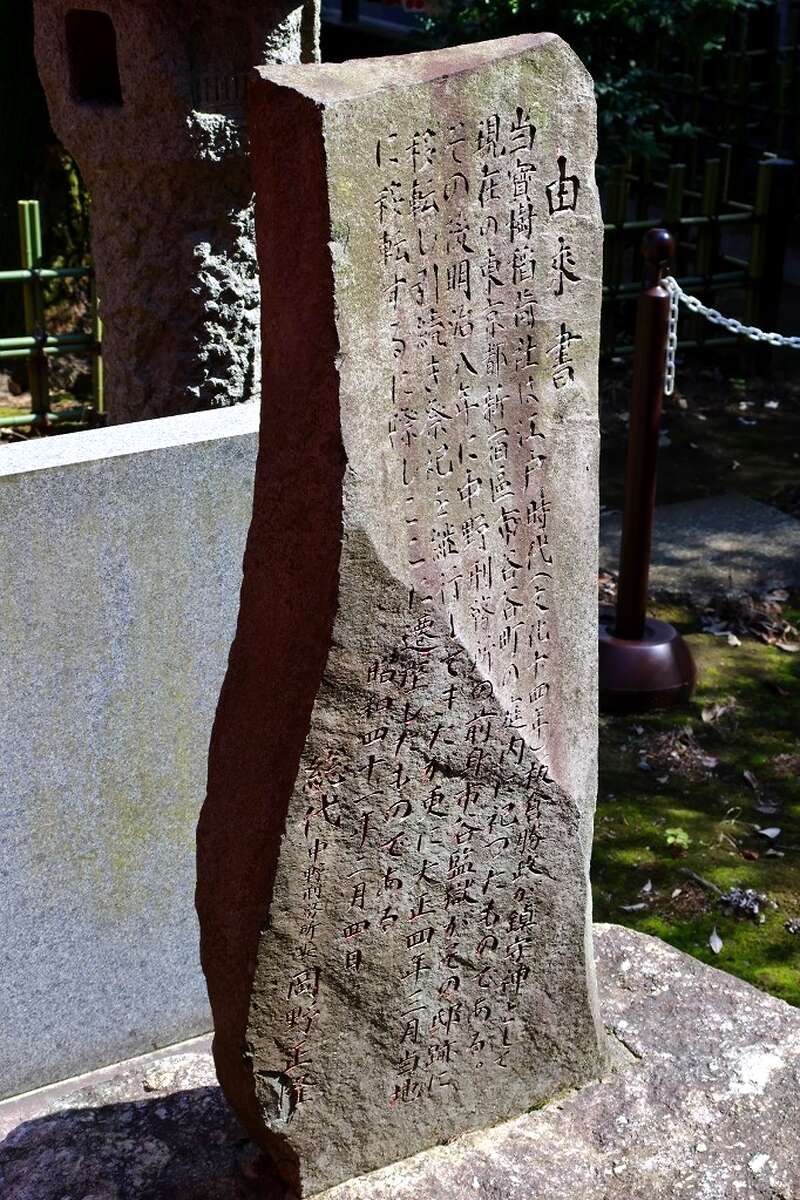 由来書
当寶樹稲荷社は江戸時代(文化十四年)板倉勝政が鎮守神として
現在の東京都新宿區市谷谷町の庭内に祀つたものである。
その後明治八年に中野刑務所の前身市谷監獄がその邸跡に
移転し引続き祭祀を継行してきたが更に大正四年二月当地
に移転するに際しここに遷座したものである
昭和四十二年二月四日
総代 中野刑務所長 岡野正